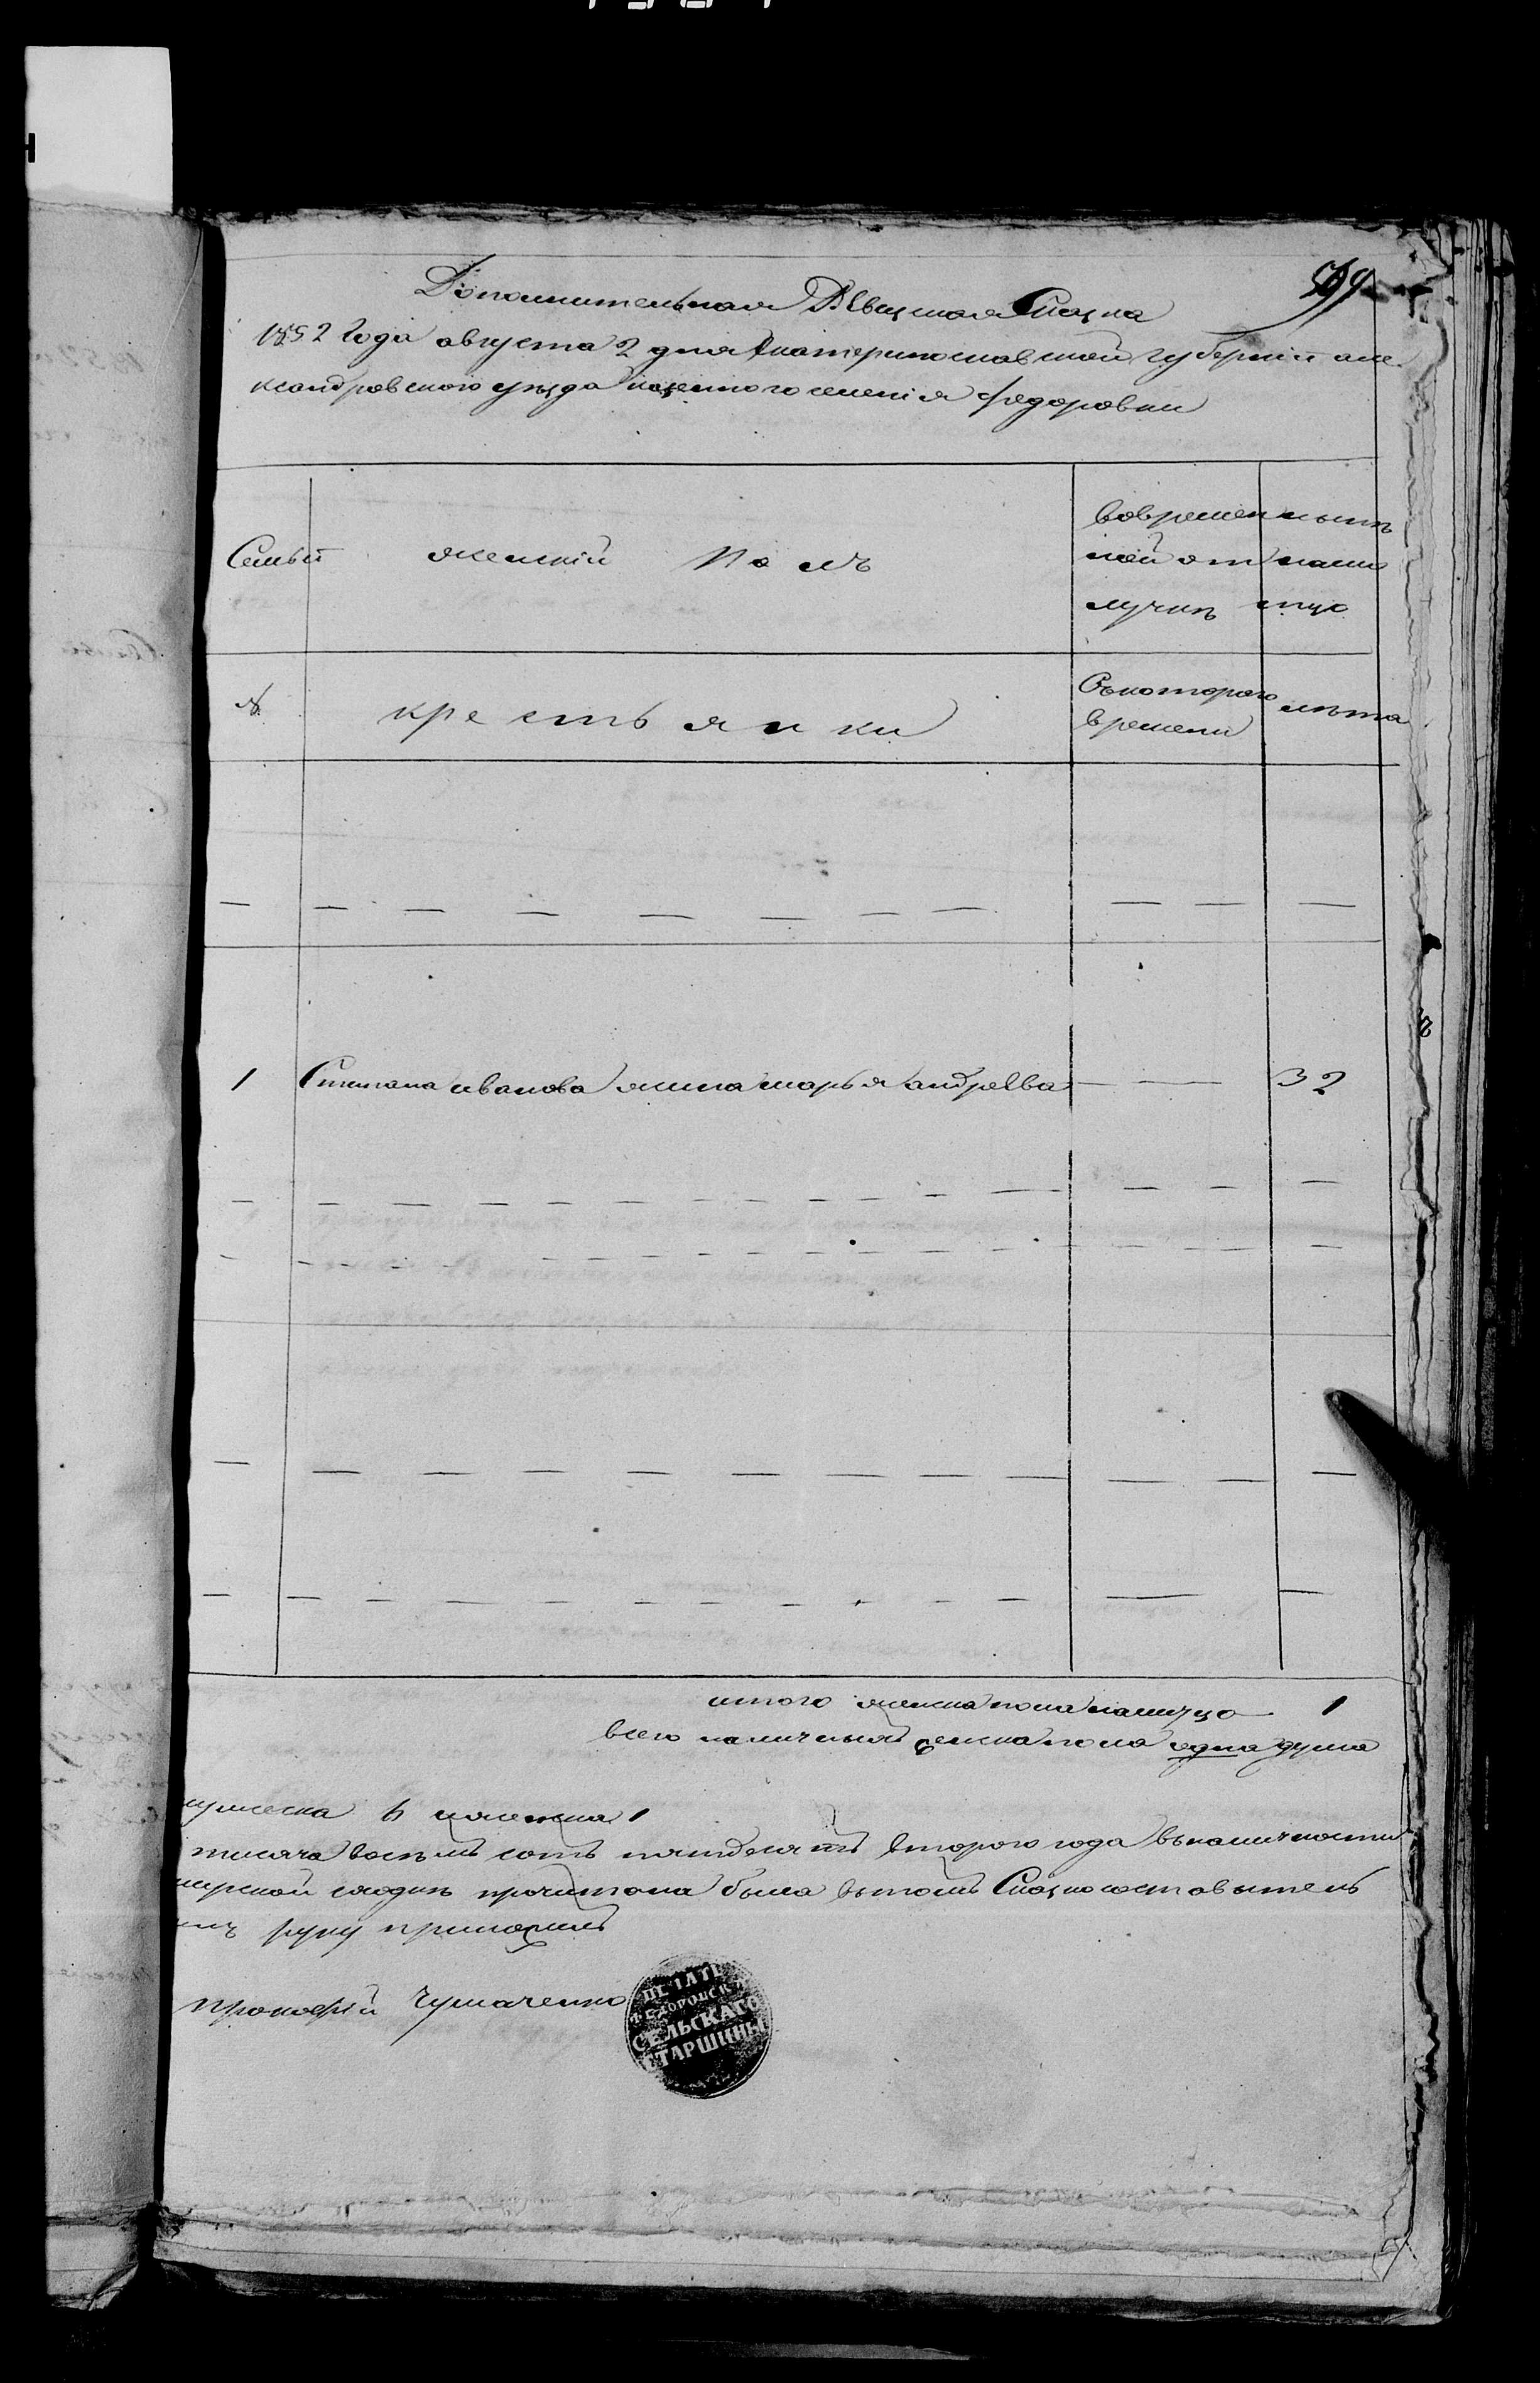 Дополнительная Ревизская Сказка
1852 года августа 2 дня Екатеринославской губернии але
ксандровского уезда казенного селения федоровки
Семьи женский полъ вовремен ной отлучкъ нынъ налицо
№ крестьянки Съкоторого времени лъта
1 Степана иванова жена марья андреева 32
итого женска пола налицо 1
всего наличныхъ женска пола одна душа
мужеска 6 женска 1
тисяча восемь сотъ пятдесятъ второго года вьналичности
мирской сходкъ прочитона была вьтомъ Сказкосоставитель
руку приложилъ
прокофий Чумаченко
ПЕЧАТЬ
ФЕДОРОВСК
СЕЛЬСКАГО
СТАРШИНЫ